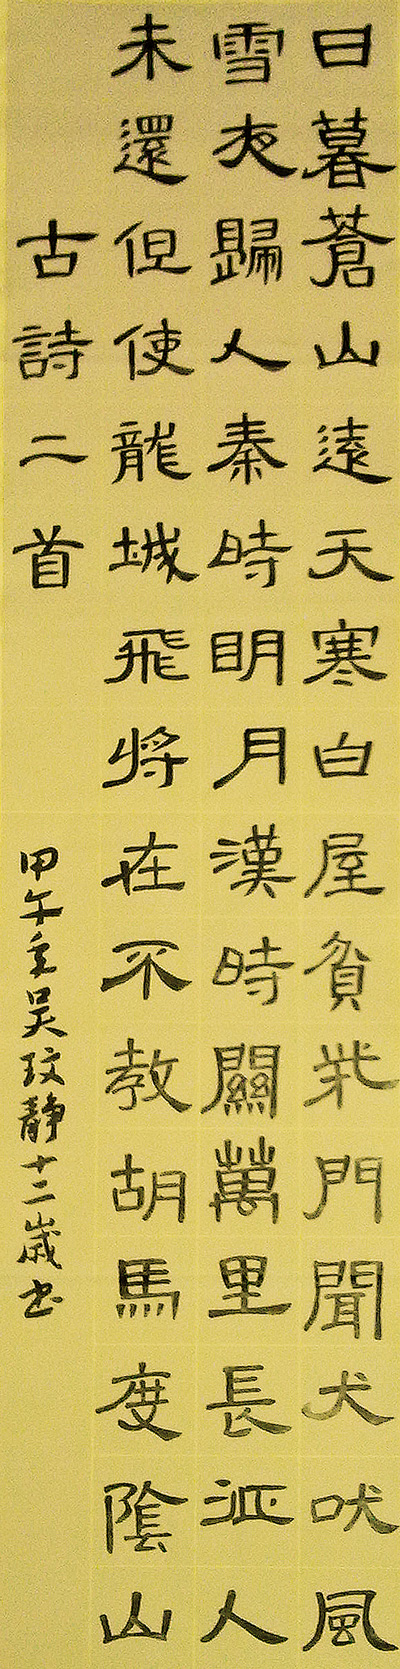 日暮蒼山遠天寒白屋貧柴門聞犬吠風
雪夜歸人秦時明月漢時關萬里長征人
未還但使龍城飛將在不教胡馬度陰山
古詩二首
甲午吳玟靜十二歲書